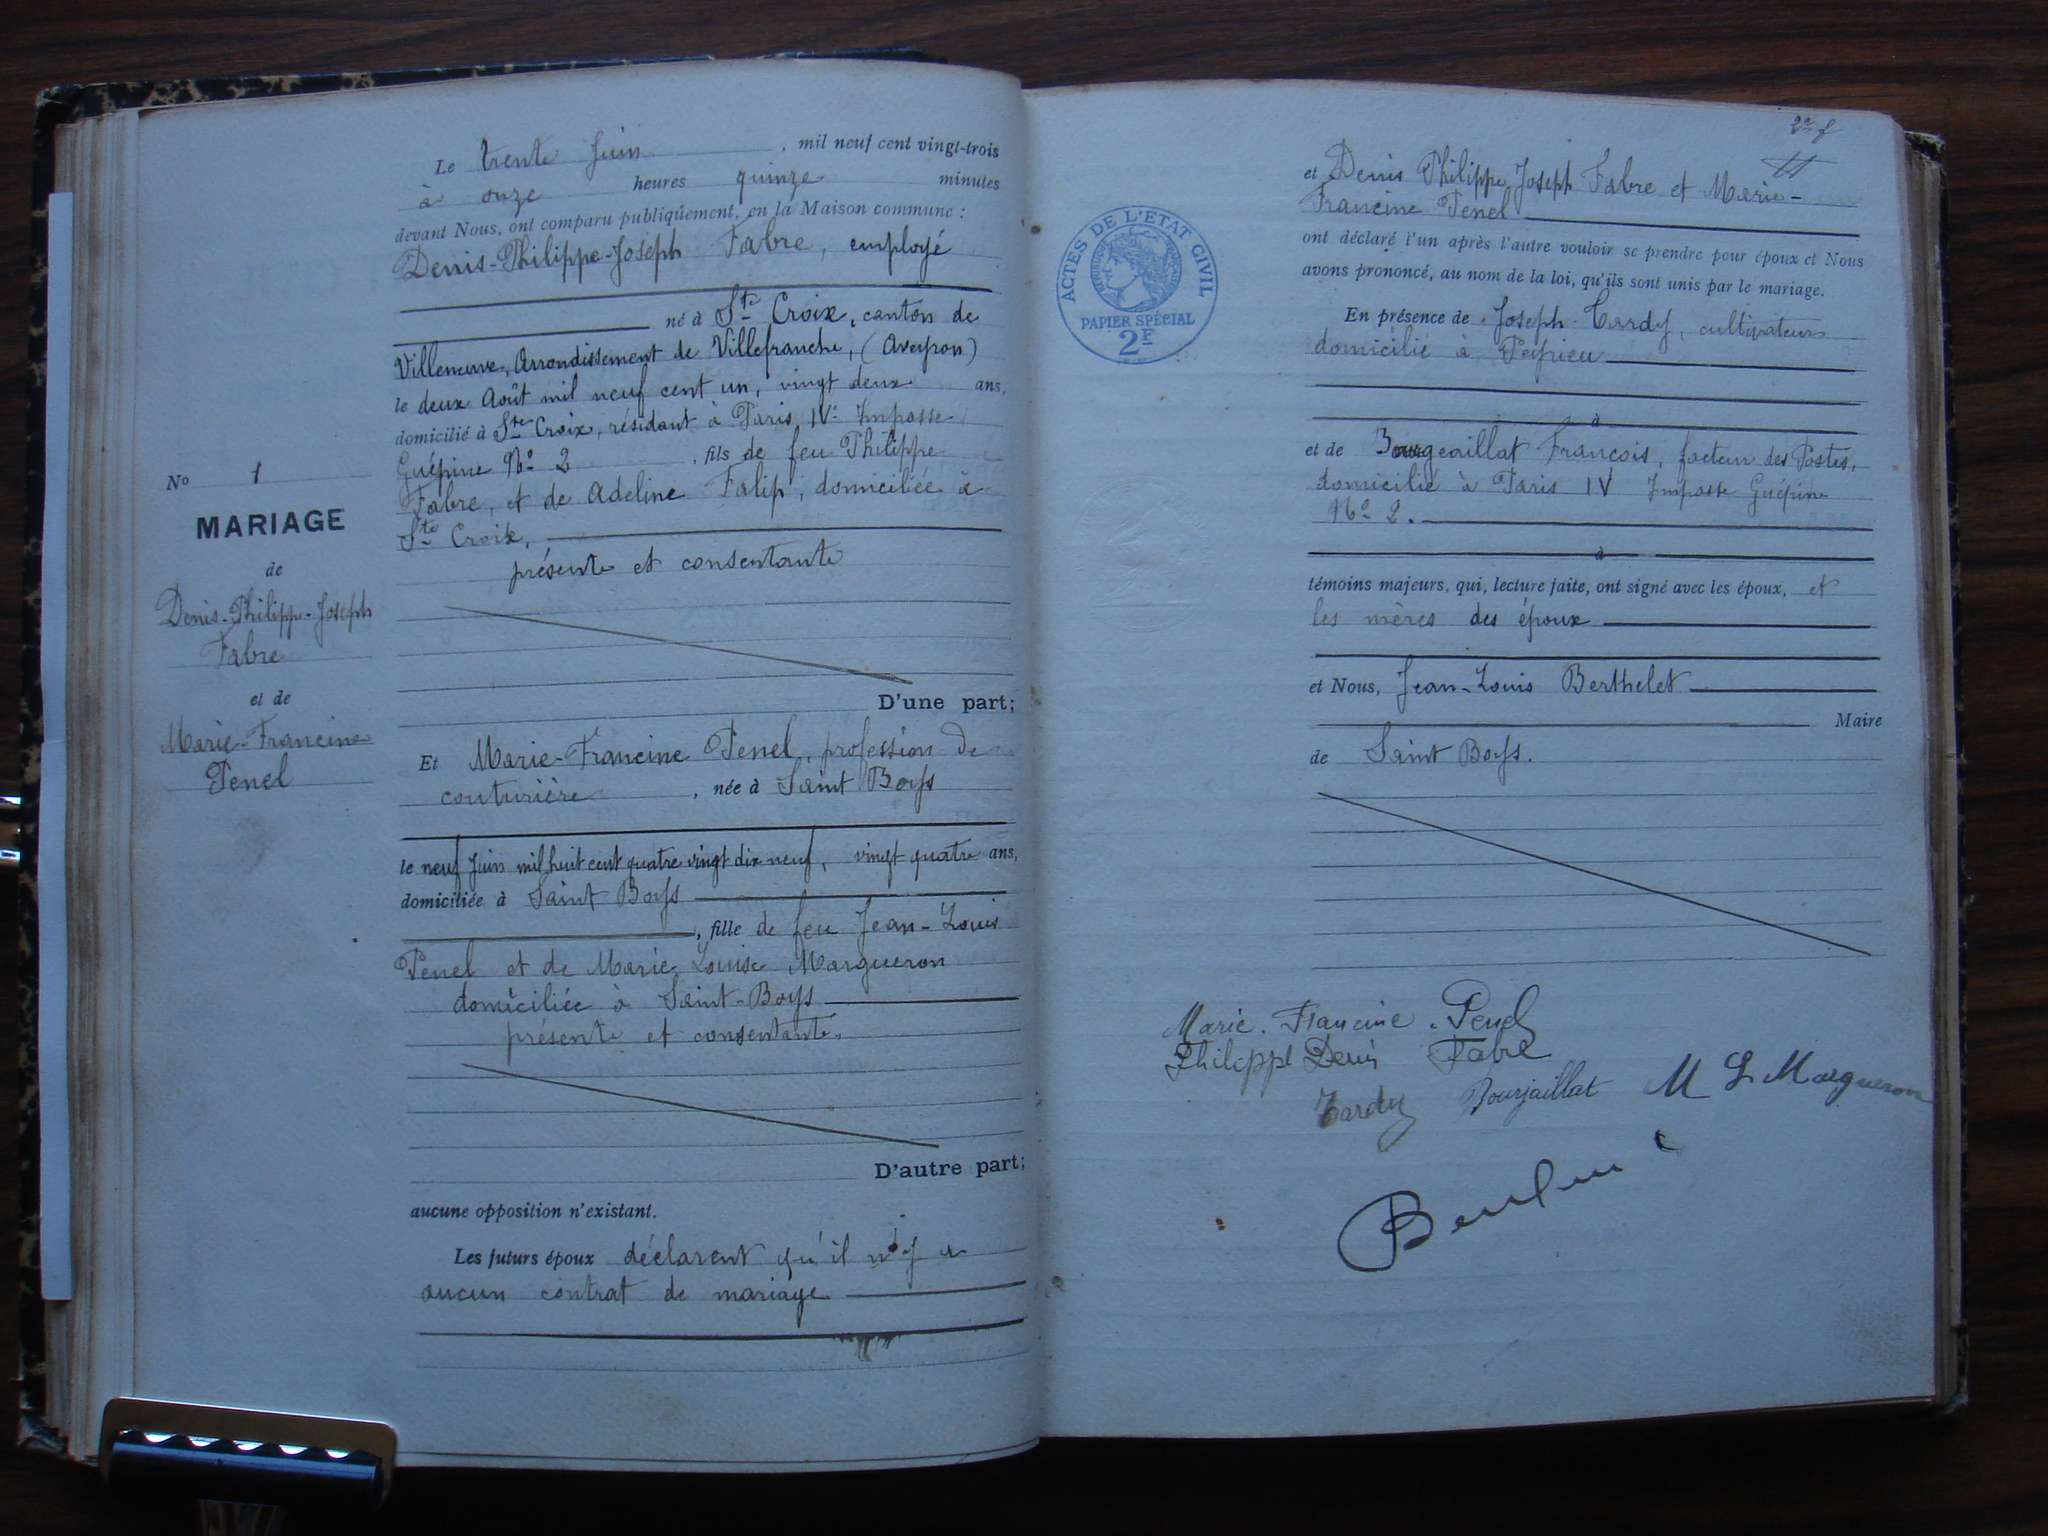 Le trente Juin , mil neuf cent vingt-trois
à onze heures quinze minutes
devant Nous, ont comparu publiquement, en la Maison commune :
Denis-Philippe-Joseph Fabre, employé
né à Ste Croix, canton de
Villeneuve, Arrondissement de Villefranche, (Aveyron)
le deux Août mil neuf cent un, vingt deux ans,
domicilié à Ste Croix, résidant à Paris IVe Impasse
Guépine No 2 , fils de feu Philippe
Fabre, et de Adeline Falip, domiciliée à
Ste Croix,
présente et consentante
D'une part;
No 1
MARIAGE
de
Denis-Philippe-Joseph
Fabre
et de
Marie-Francine
Penel
Et Marie-Francine Penel, profession de
couturière , née à Saint Boys
le neuf Juin mil huit cent quatre vingt dix neuf, vingt quatre ans,
domiciliée à Saint Boys
, fille de feu Jean-Louis
Penel et de Marie Louise Margueron
domiciliée à Saint-Boys
présente et consentante.
D'autre part;
aucune opposition n'existant.
Les futurs époux déclarent qu'il n'y a
aucun contrat de mariage
2e f
et Denis Philippe Joseph Fabre et Marie-
Francine Penel
ont déclaré l'un après l'autre vouloir se prendre pour époux et Nous
avons prononcé, au nom de la loi, qu'ils sont unis par le mariage.
ACTES DE L'ETAT CIVIL
PAPIER SPÉCIAL
2F
En présence de Joseph Tardy, cultivateur
domicilié à Peyrieu
à
et de Bourgeaillat François, facteur des Postes,
domicilié à Paris IV Impasse Guépine
No 2.
à
témoins majeurs, qui, lecture faite, ont signé avec les époux, et
les mères des époux
et Nous, Jean-Louis Berthelet
Maire
de Saint Boys.
Marie. Francine. Penel
Philippe Denis Fabre
Tardy Bourjaillat M L Margueron